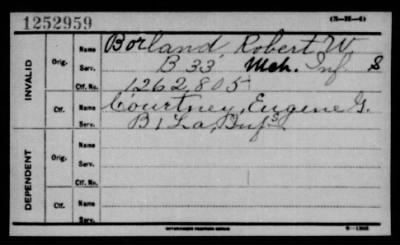 1252959
(3-H-4)
INVALID
Orig.
Name Borland, Robert W.
Serv. B 33' Mch. Inf. S
Ctf. No. 1262,805
Ctf.
Name Courtney, Eugene G.
Serv. B 1 La, Inf S
DEPENDENT
Orig.
Name
Serv.
Ctf. No.
Ctf.
Name
Serv.